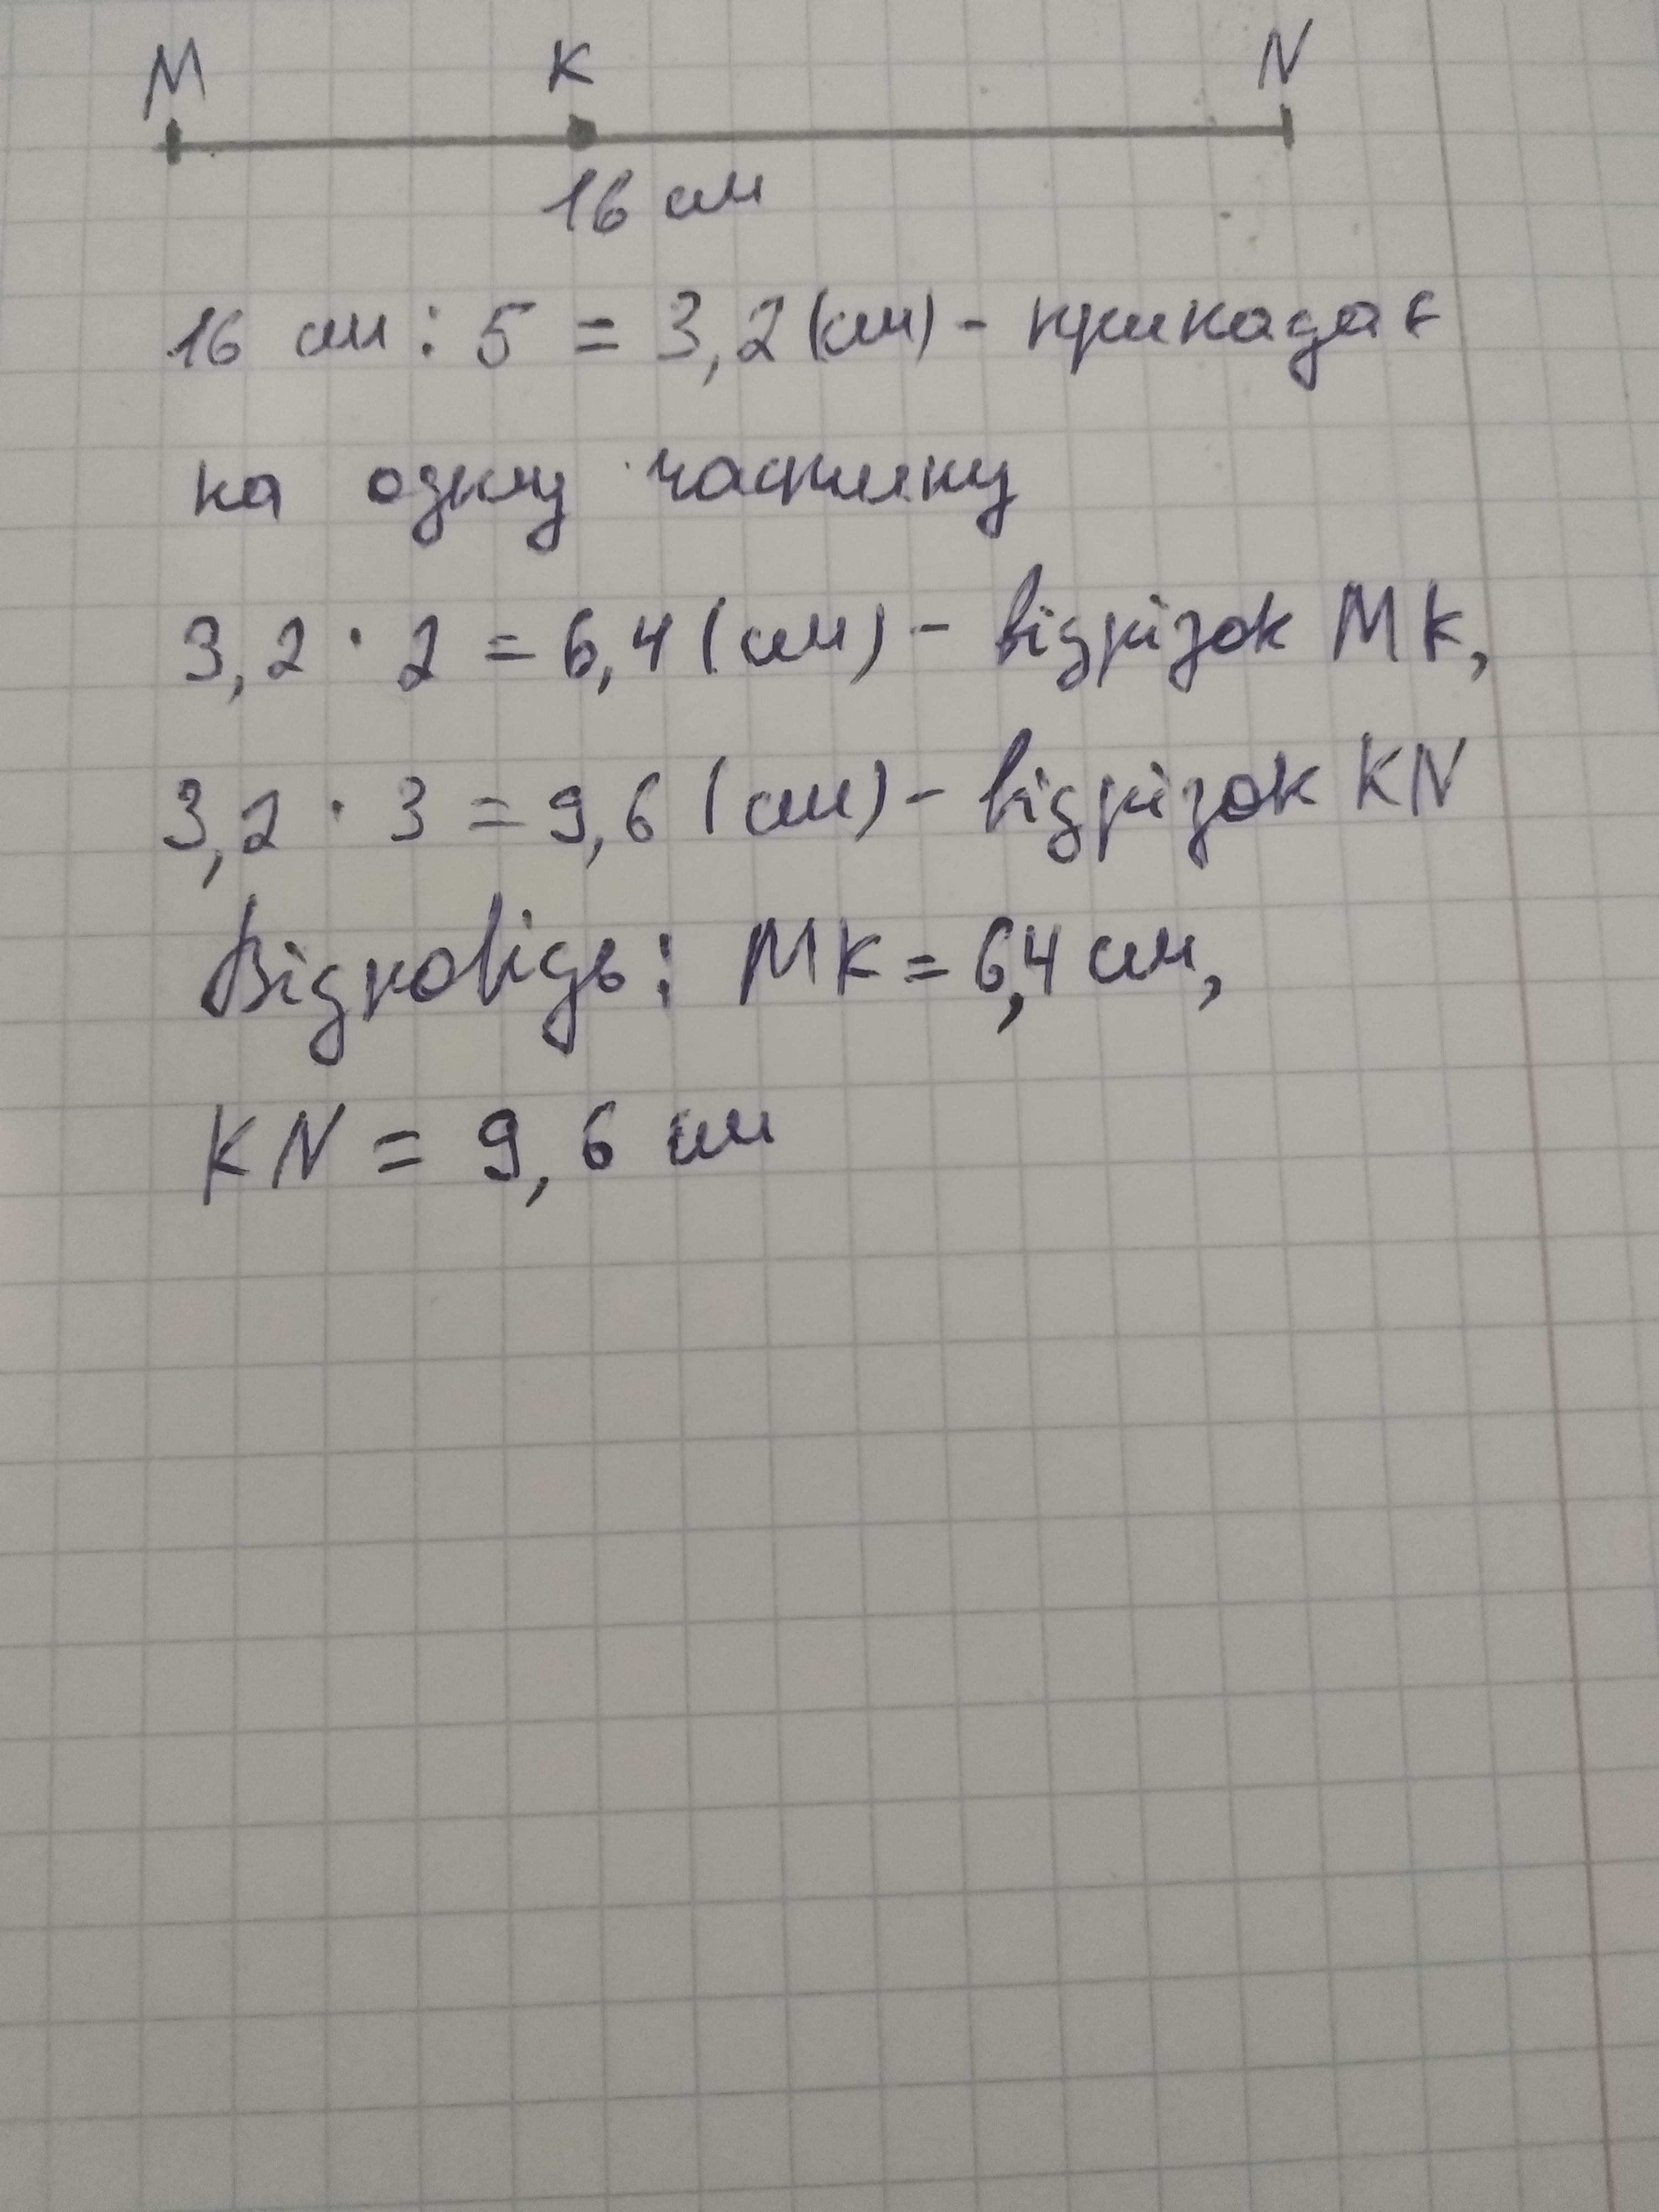 M K N
16 см
16 см : 5 = 3,2 (см) - припадає
на одну частину
3,2 · 2 = 6,4 (см) - відрізок MK,
3,2 · 3 = 9,6 (см) - відрізок KN
Відповідь: MK = 6,4 см,
KN = 9,6 см